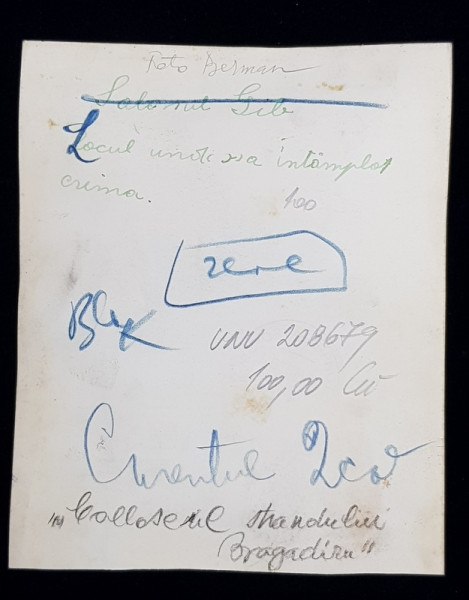 Foto Berman
Salonul Gib
Locul unde s-a întâmplat
crima.
100
UNU 208679
100,00
Curentul 2 col
"Colloseul strandului
Bragadiru"